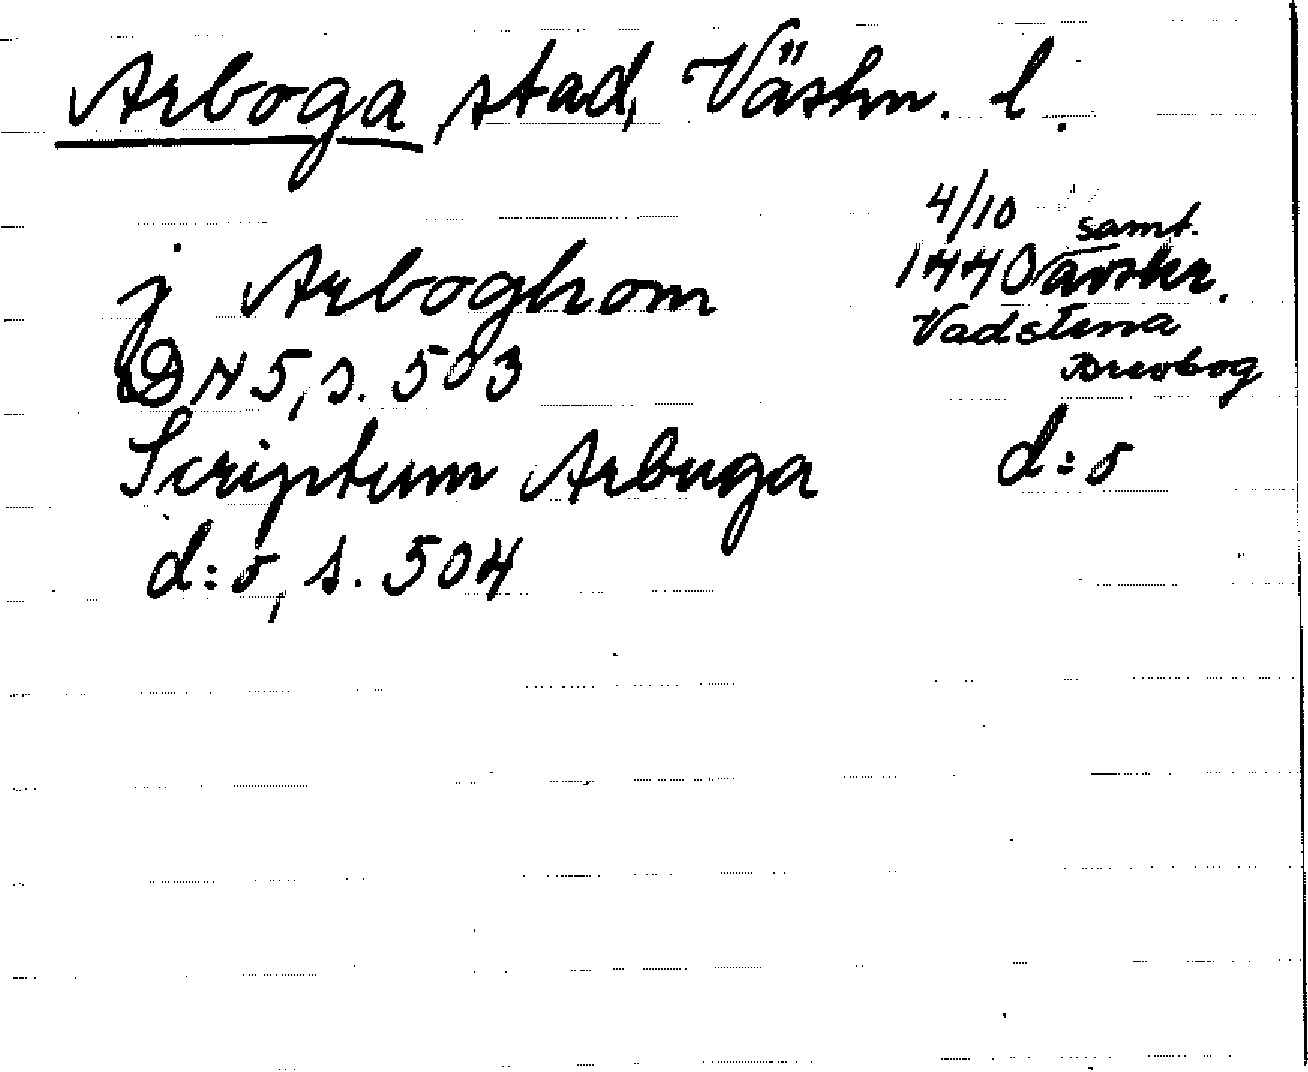 Arboga stad, Västm. l.
4/10
j Arboghom 1440 samt. avskr.
Vadstena
DN 5, s. 503 Brevbog
Scriptum Arbuga d:o
d:o, s. 504